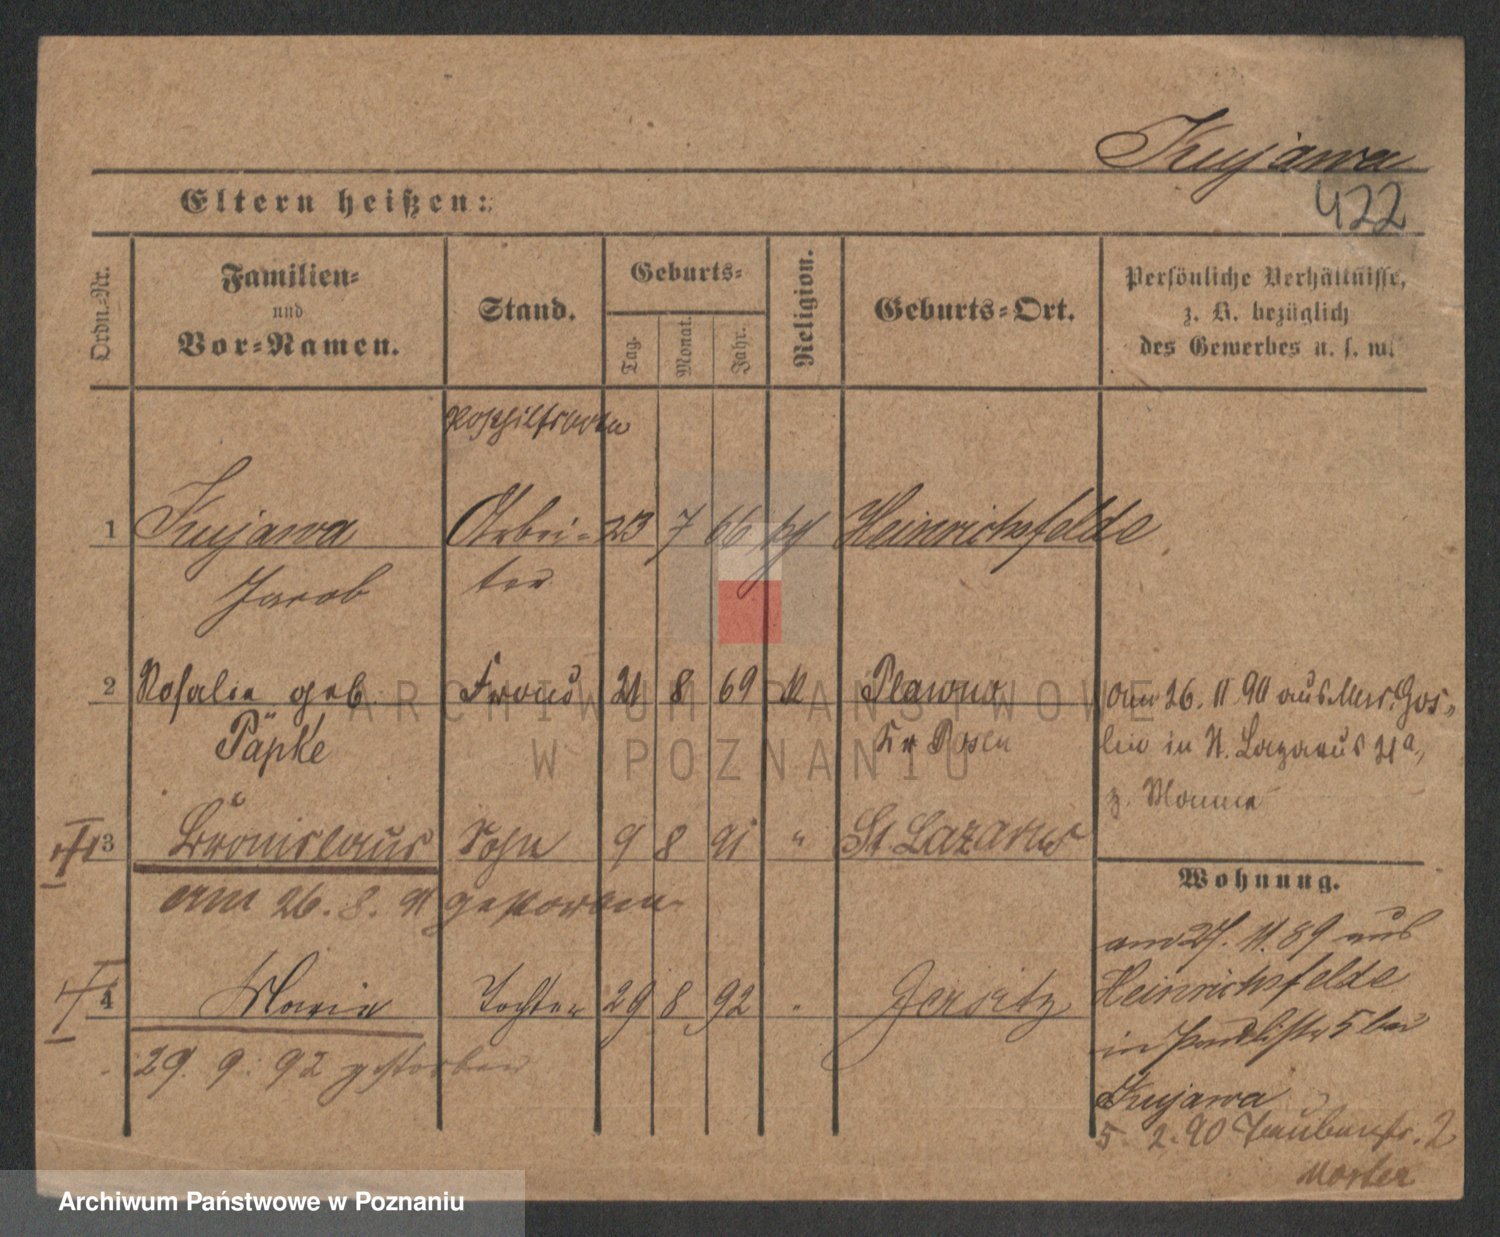 Kujawa
422
Eltern heißen:
Ordn.-Nr.
Familien-
und
Vor-Namen.
Stand.
Geburts-
Tag.
Monat.
Jahr.
Religion.
Geburts-Ort.
Persönliche Verhältnisse,
z. B. bezüglich
des Gewerbes u. s. w.
Posthilfsbote
1 Kujawa Arbei- 23 7 66 kg Heinrichsfelde
Jacob ter
2 Rosalie geb. Frau 21 8 69 K Plawno am 26. 11 90 aus Mur. Gos-
Päpke Kr Posen lin in St. Lazarus 21a,
z. Manne
3 Bronislaus Sohn 9 8 91 " St. Lazarus
am 26. 8. 91 gestorben
4 Marie Tochter 29 8 92 " Jersitz
29. 9. 92 gestorben
Wohnung.
am 27. 11. 89 aus
Heinrichsfelde
in 5 bei
Kujawa
5. 2. 90 2
ARCHIWUM PAŃSTWOWE
W POZNANIU
Archiwum Państwowe w Poznaniu